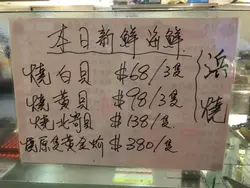 本日新鮮海鮮
燒白貝 $68/3隻
燒黃貝 $98/3隻
燒北寄貝 $138/隻
燒原隻黃金蚧 $380/隻
浜燒